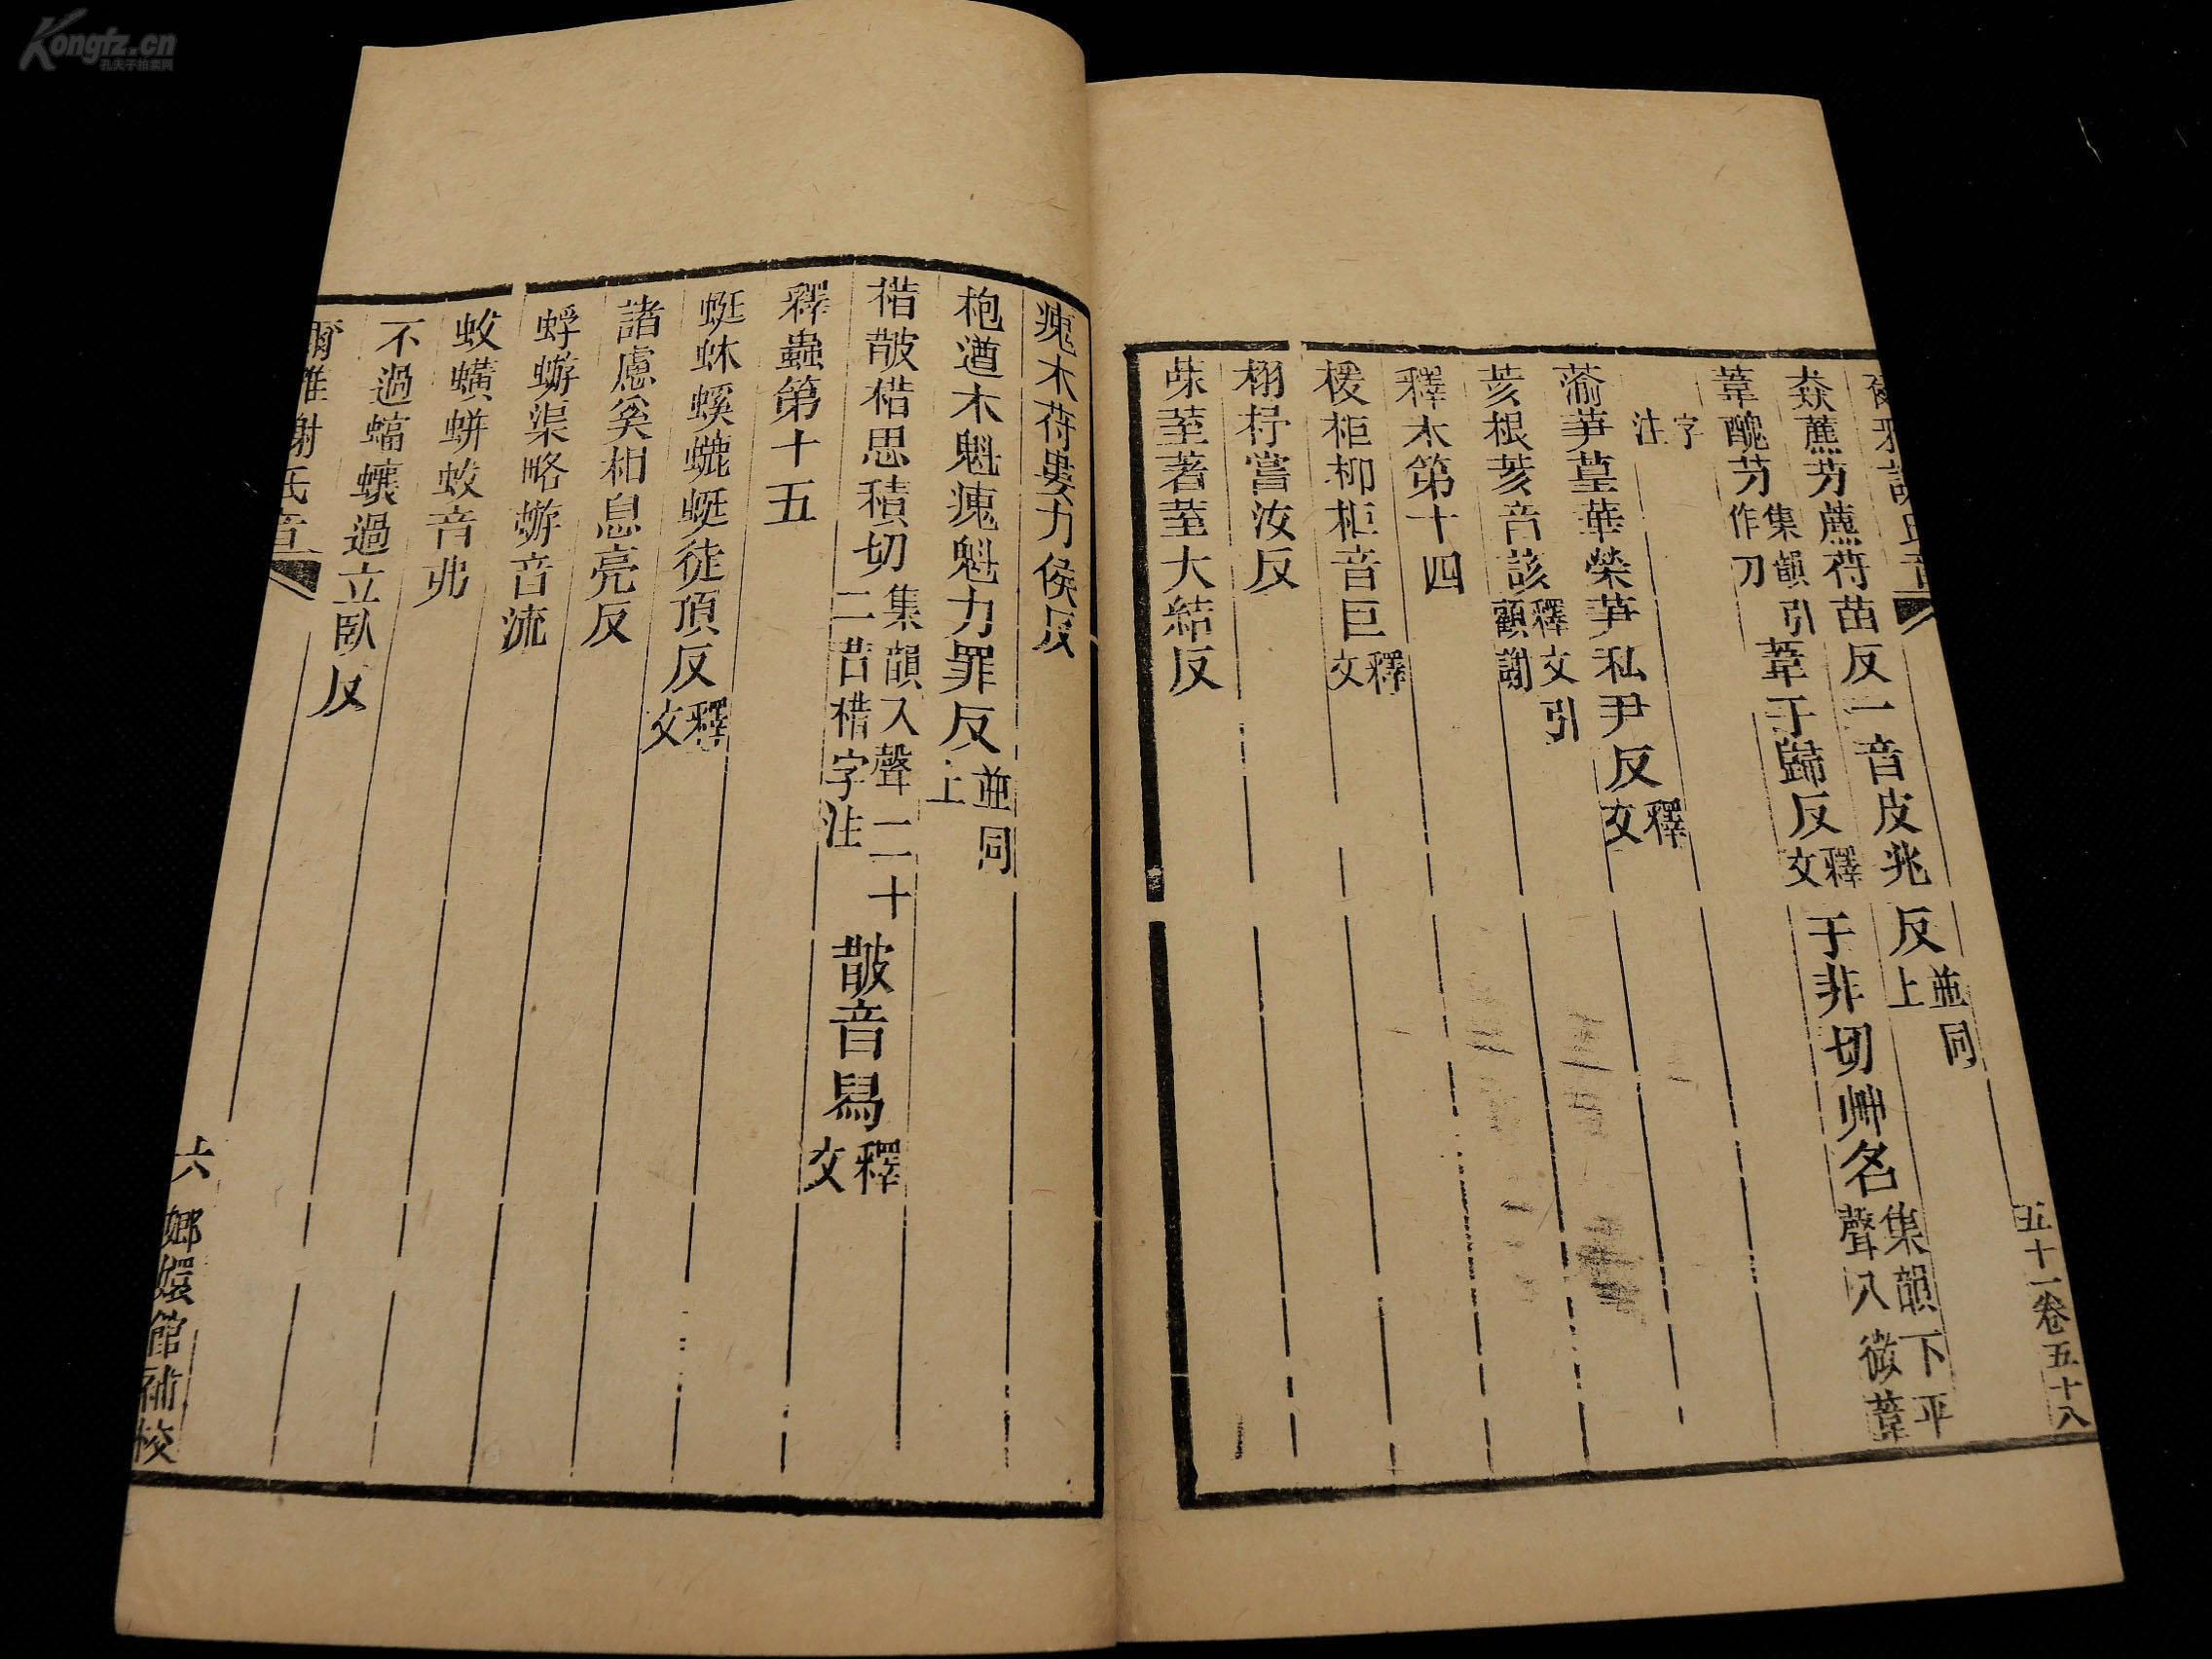 Kongfz.cn
孔夫子拍卖网
五十一卷五十八
猋藨芀藨苻苗反一音皮兆反並同上
葦醜芀集韻引作刀葦于歸反釋文于非切艸名集韻下平聲八微葦
字注
蕍芛葟華榮芛私尹反釋文
荄根荄音該釋文引顧謝
釋木第十四
楥柜桺柜音巨釋文
栩杼嘗汝反
莍荎著荎大結反
瘣木苻婁力侯反
枹遒木魁瘣魁力罪反並同上
棤皵棤思積切集韻入聲二十二昔棤字注皵音舄釋文
釋蟲第十五
蜓蚞螇螰蜓徒頂反釋文
諸慮奚相息亮反
蜉蝣渠略蝣音流
蛂蟥蛢蛂音弗
不過蟷蠰過立臥反
爾雅謝氏音
六
嫏嬛館補校